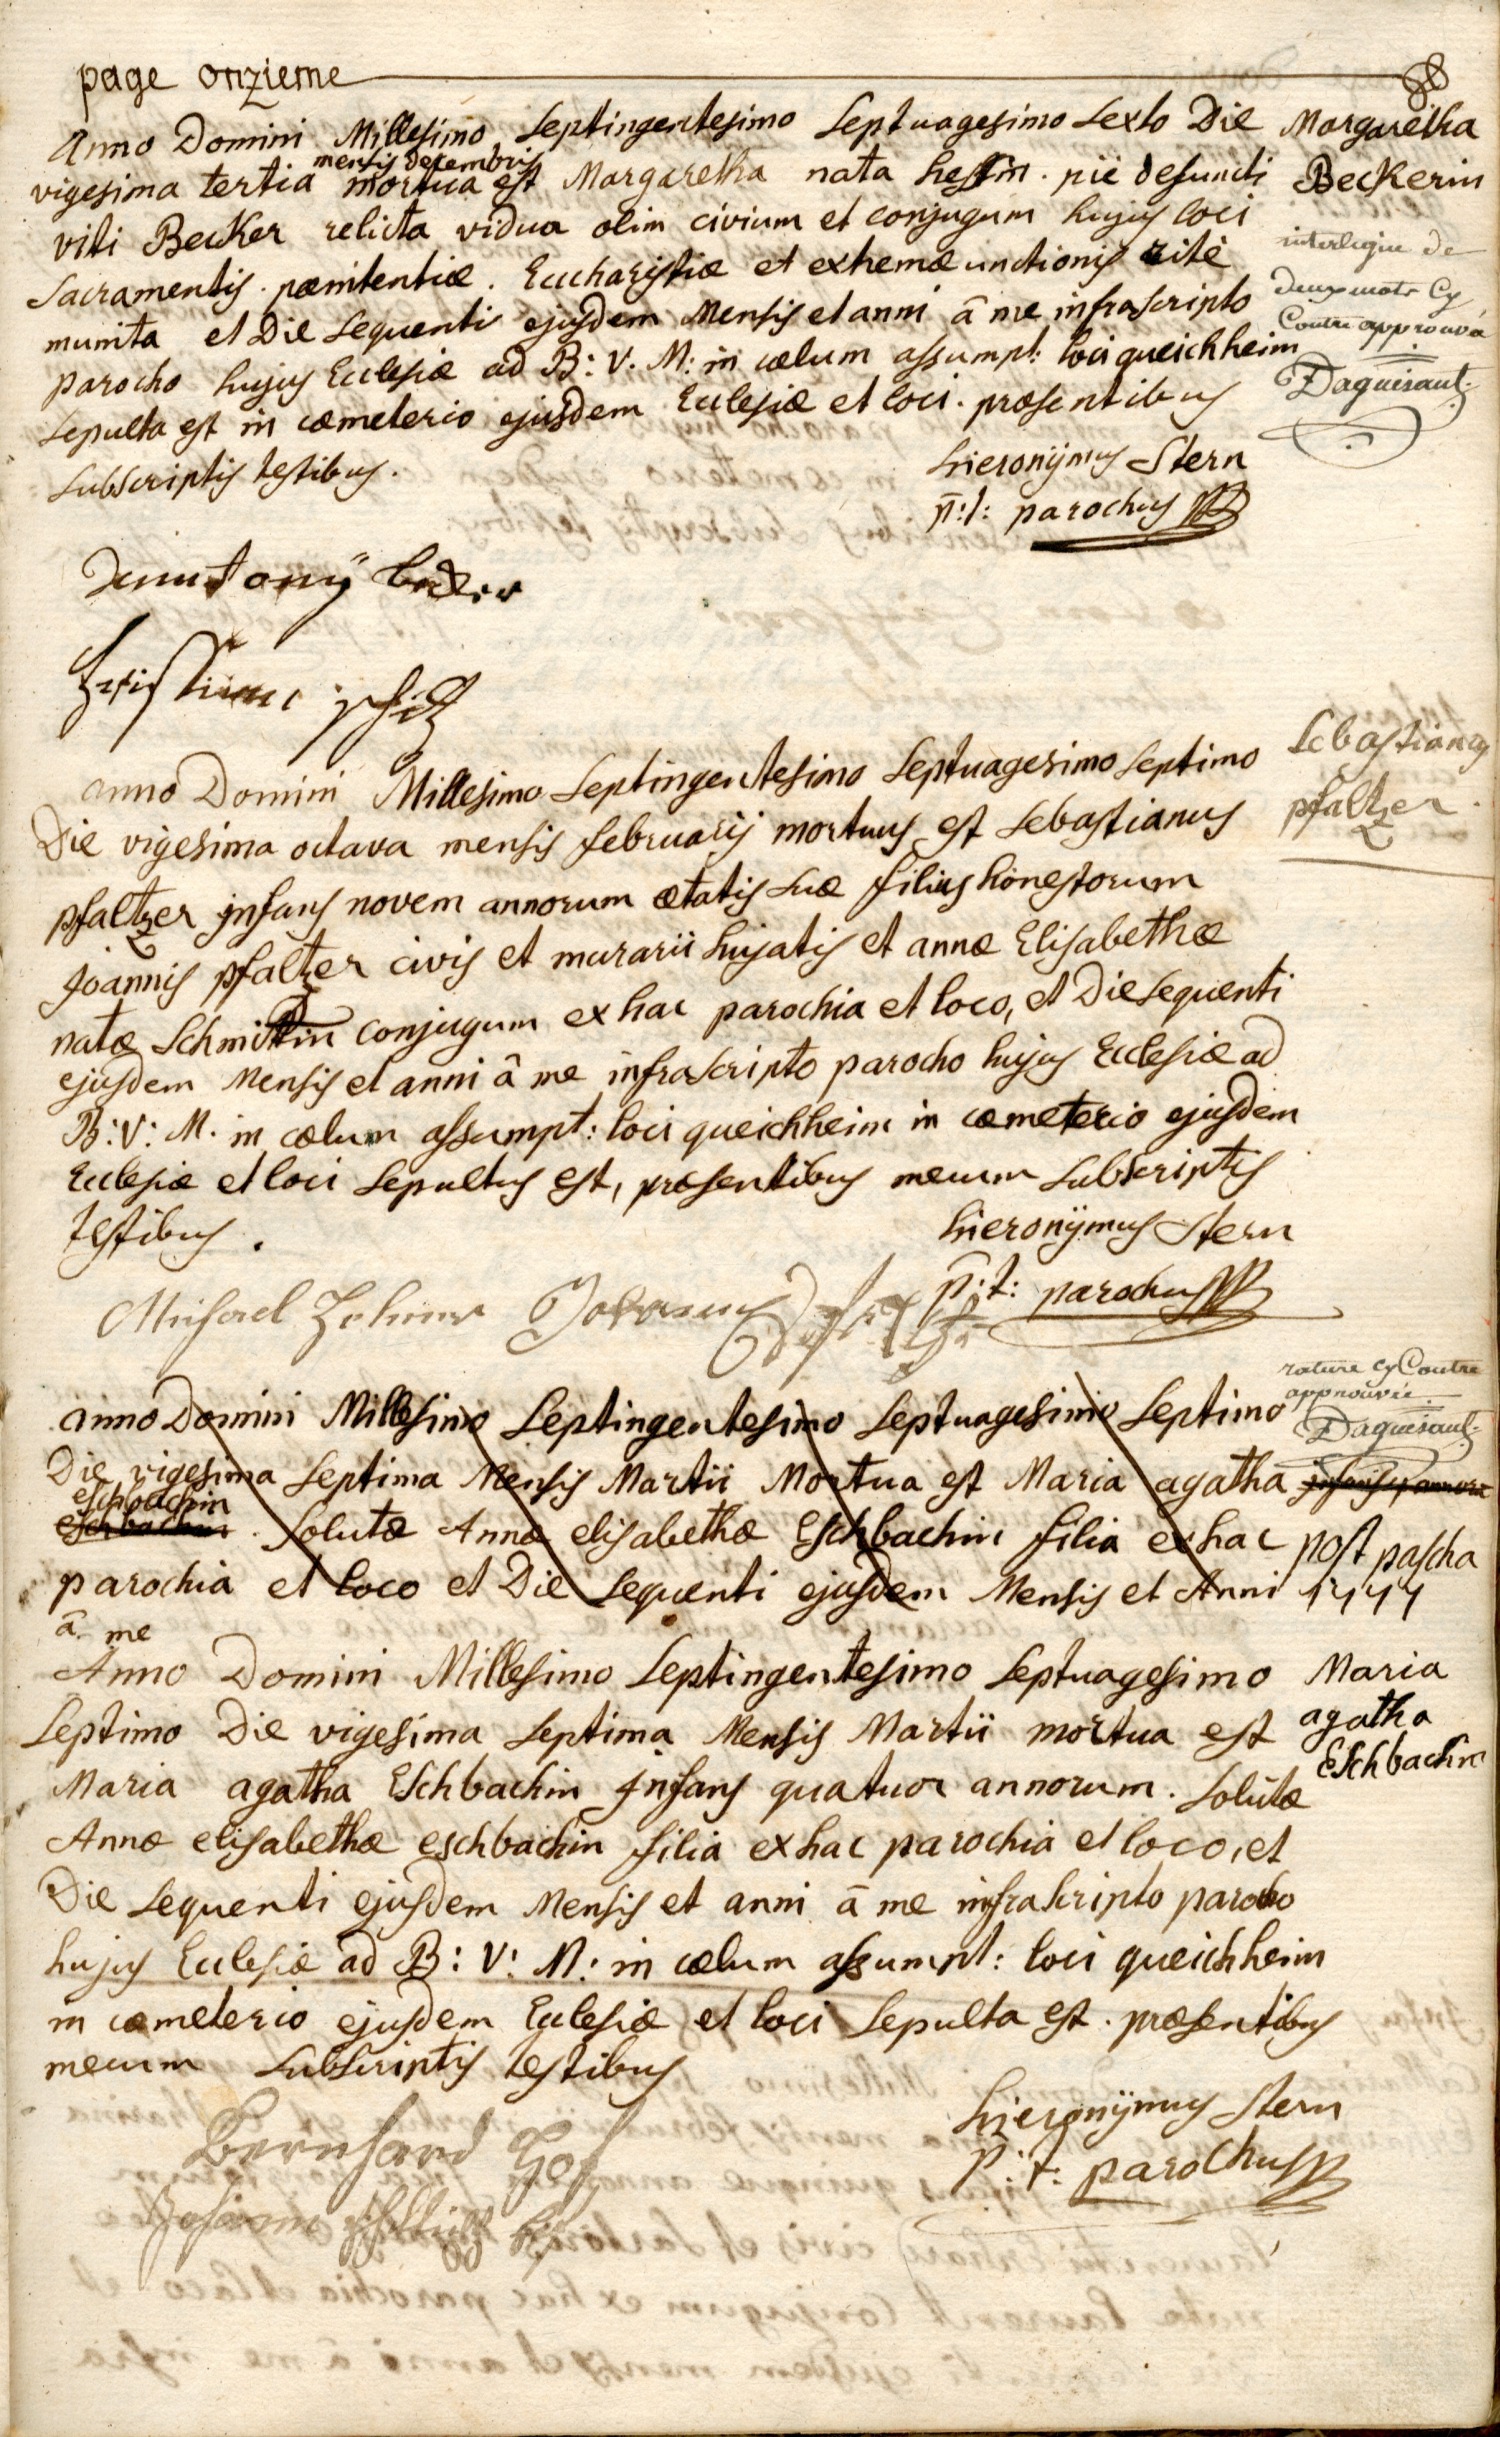 page onzieme
Anno Domini Millesimo Septingentesimo Septuagesimo Sexto Die
mensis decembris
vigesima tertia mortua est Margaretha nata pie defuncti
viti Becker relicta vidua olim civium et conjugum hujus loci
Sacramentis. pænitentiæ. Eucharistiæ et extremæ unctionis ritè
munita et Die sequenti ejusdem Mensis et anni â me infrascripto
parocho hujus Ecclesiæ ad B: V. M: in cælum assumpt: loci queichheim
Sepulta est in cæmeterio ejusdem Ecclesiæ et loci. præsentibus
subscriptis testibus.
Hieronijmus Stern
p:t: parochus
Margaretha
Beckerin
interligne de
deux mots cy
Contre approuvé
Daguisaut
anno Domini Millesimo Septingentesimo Septuagesimo Septimo
Die vigesima octava mensis februarij mortuus est Sebastianus
pfaltzer jnfans novem annorum ætatis suæ filius honestorum
Joannis pfaltzer civis et murarii hujatis et annæ Elisabethæ
natæ Schmittin conjugum ex hac parochia et loco, et Die sequenti
ejusdem Mensis et anni â me infrascripto parocho hujus Ecclesiæ ad
B: V: M. in cælum assumpt: loci queichheim in cæmeterio ejusdem
Ecclesiæ et loci sepultus est, præsentibus mecum subscriptis
testibus.
Hieronijmus Stern
p:t: parochus
Sebastianus
pfaltzer.
Michael
rature cy Contre
approuvée
Daguisaut
anno Domini Millesimo Septingentesimo Septuagesimo Septimo
Die vigesima Septima Mensis Martii Mortua est Maria agatha
eschbachin
eschbachin. Solutæ Annæ elisabethæ Eschbachin filia ex hac
parochia et loco et Die sequenti ejusdem Mensis et Anni
â me
post pascha
1777
Anno Domini Millesimo Septingentesimo Septuagesimo
Septimo Die vigesima Septima Mensis Martii mortua est
Maria agatha Eschbachin jnfans quatuor annorum. Solutæ
Annæ elisabethæ eschbachin filia ex hac parochia et loco, et
Die sequenti ejusdem Mensis et anni â me infrascripto parocho
hujus Ecclesiæ ad B: V: M: in cælum assumpt: loci queichheim
in cæmeterio ejusdem Ecclesiæ et loci Sepulta est. præsentibus
mecum subscriptis testibus
Hieronijmus Stern
p:t: parochus
Maria
agatha
Eschbachin
Bernhard